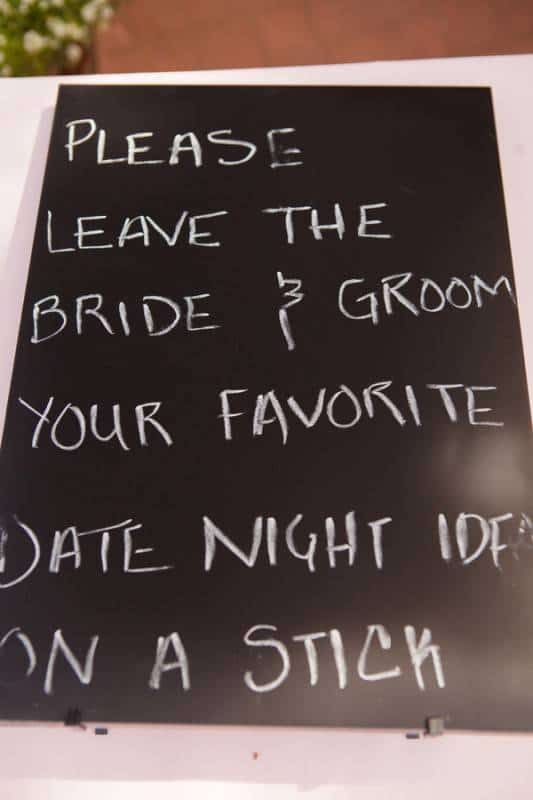 PLEASE
LEAVE THE
BRIDE & GROOM
YOUR FAVORITE
DATE NIGHT IDEA
ON A STICK